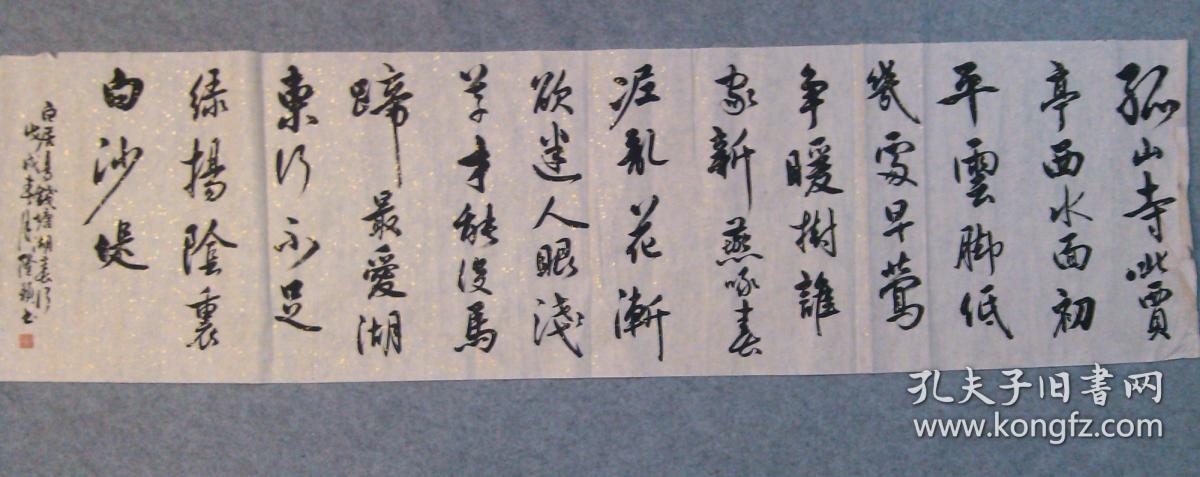 孤山寺北賈
亭西水面初
平雲脚低
幾處早鶯
争暖樹誰
家新燕啄春
泥亂花漸
欲迷人眼淺
草才能没馬
蹄最愛湖
東行不足
緑揚陰裏
白沙堤
白居易錢塘湖春行
戌年月隆书
孔夫子旧書网
www.kongfz.com